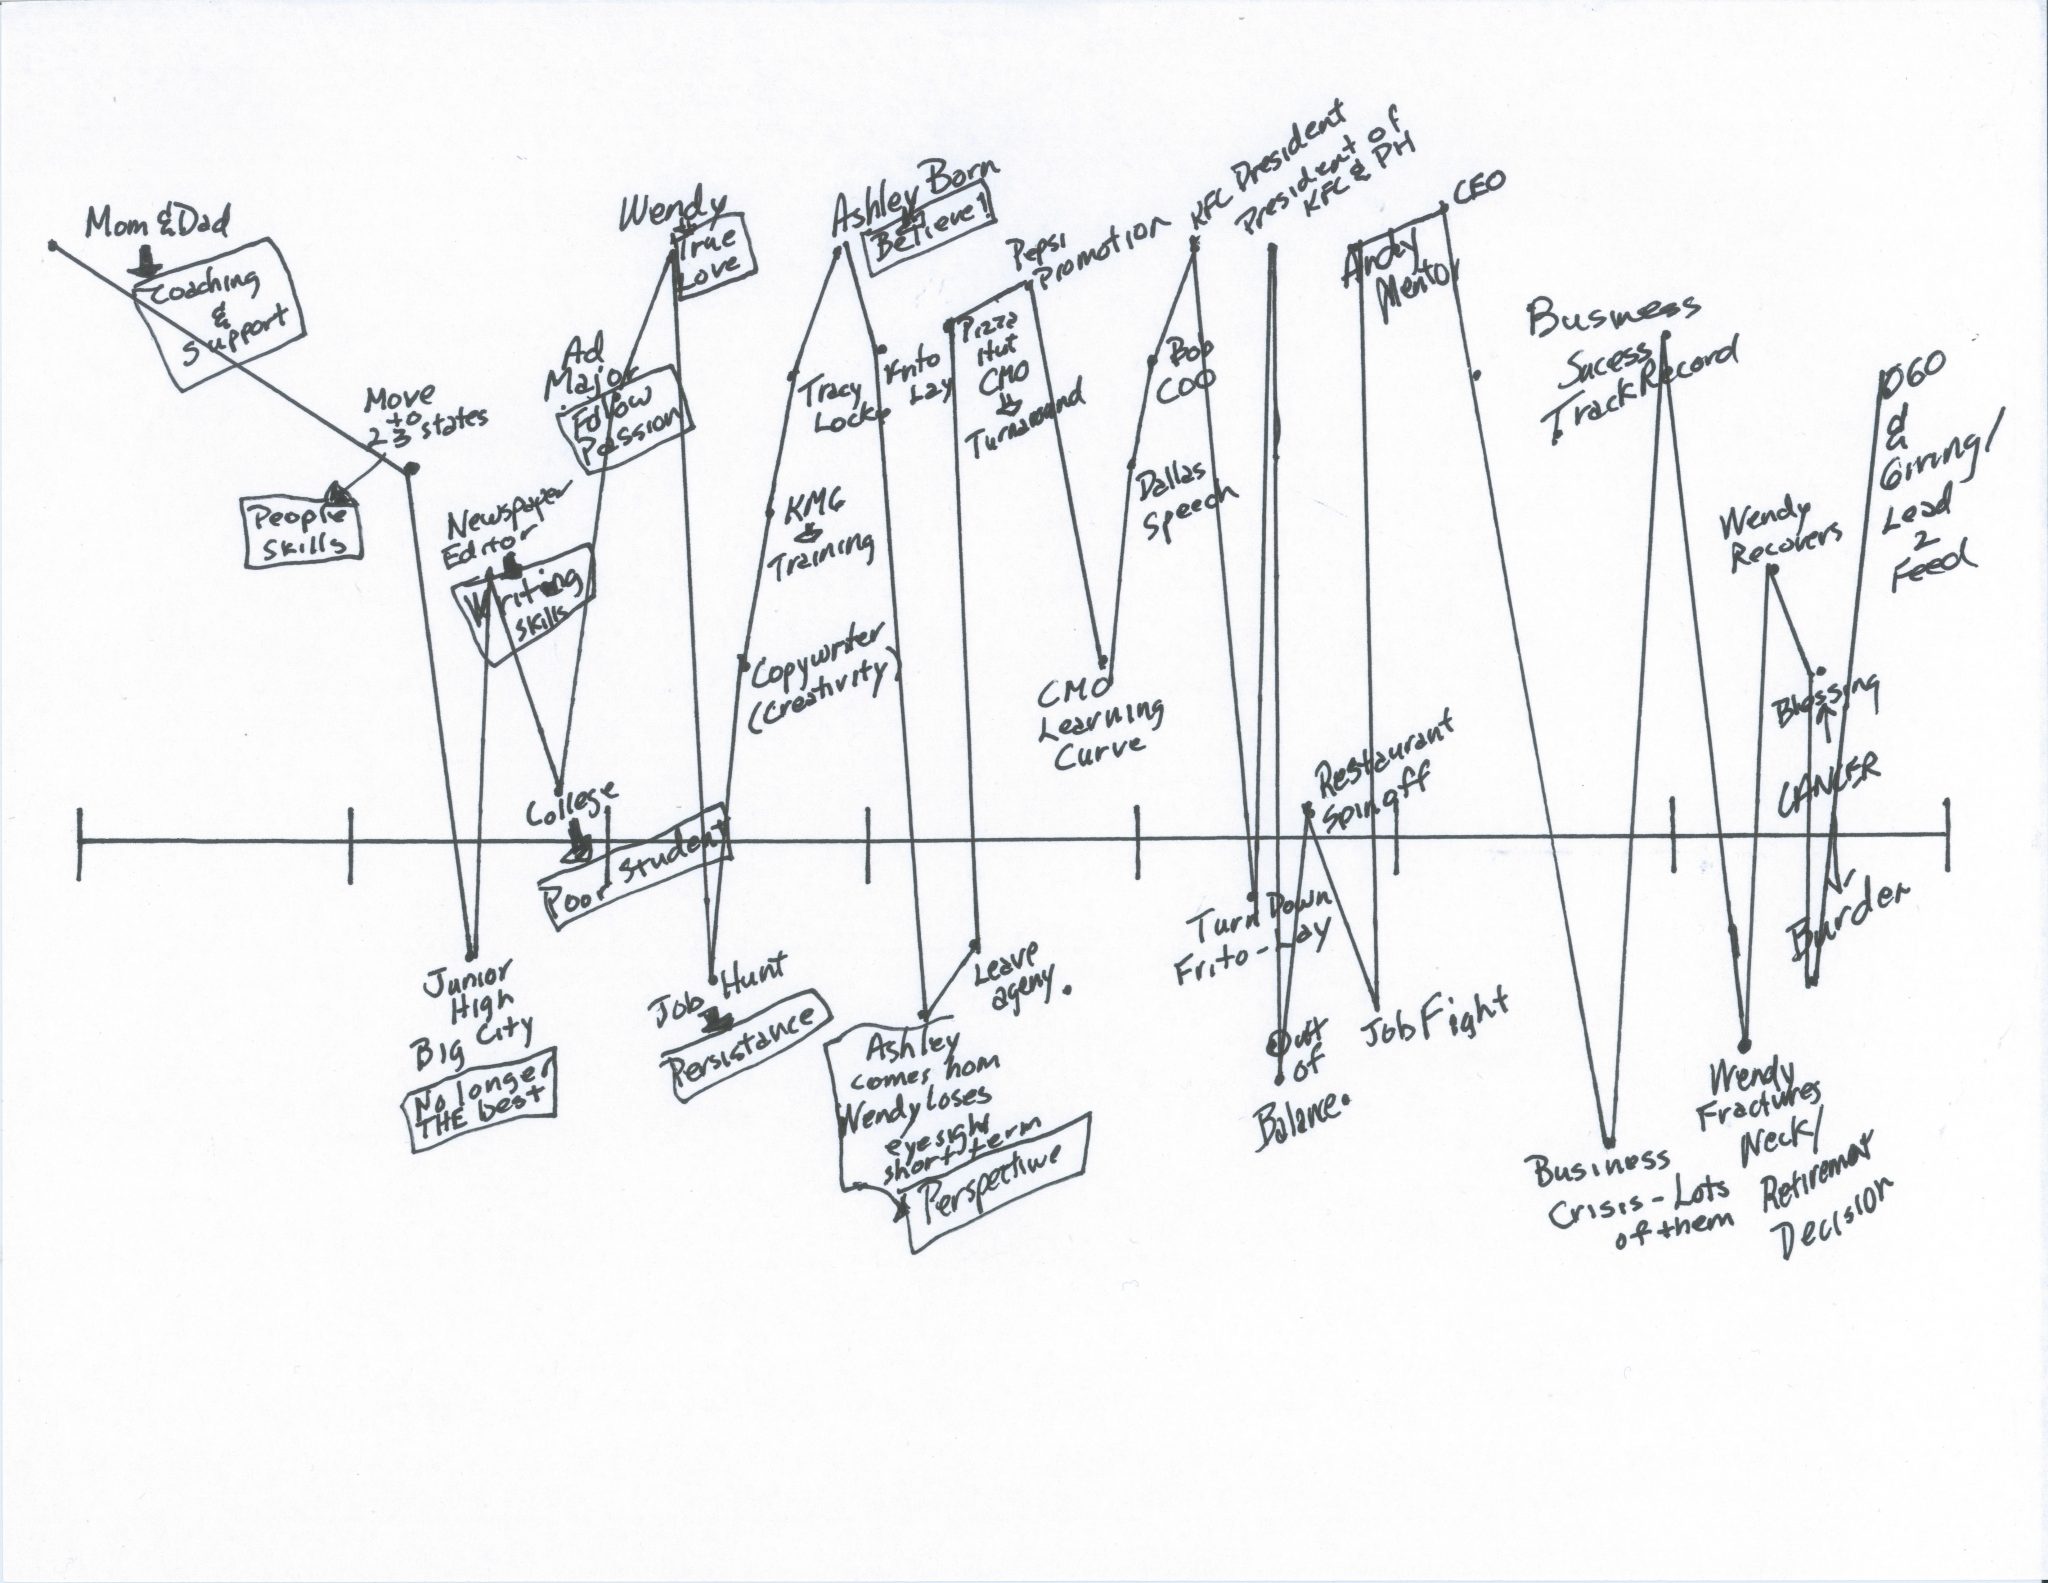 Mom & Dad
Coaching
&
Support
Move
to
2 3 states
People
Skills
Junior
High
Big City
No longer
THE best
Newspaper
Editor
Writing
skills
College
Poor Student
Ad
Major
Follow
Passion
Wendy
True
Love
Job Hunt
Persistance
Copywriter
(Creativity)
Training
Tracy
Locke
Ashley Born
Believe!
Frito
Lay
Ashley
comes hom
Wendy loses
eyesight
short term
Perspective
Leave
ageny.
Pizza
Hut
CMO
Turnaround
Pepsi
Promotion
CMO
Learning
Curve
Dallas
Speech
COO
KFC President
Turn Down
Frito-Lay
President of
KFC & PH
Out
of
Balance.
Restaurant
Spinoff
Job Fight
Andy
Mentor
CEO
Business
Crisis - Lots
of them
Business
Sucess
Track Record
Wendy
Fractures
Neck/
Retirement
Decision
Wendy
Recovers
Blessing
CANCER
Burden
OGO
&
Giving/
Lead
2
Feed